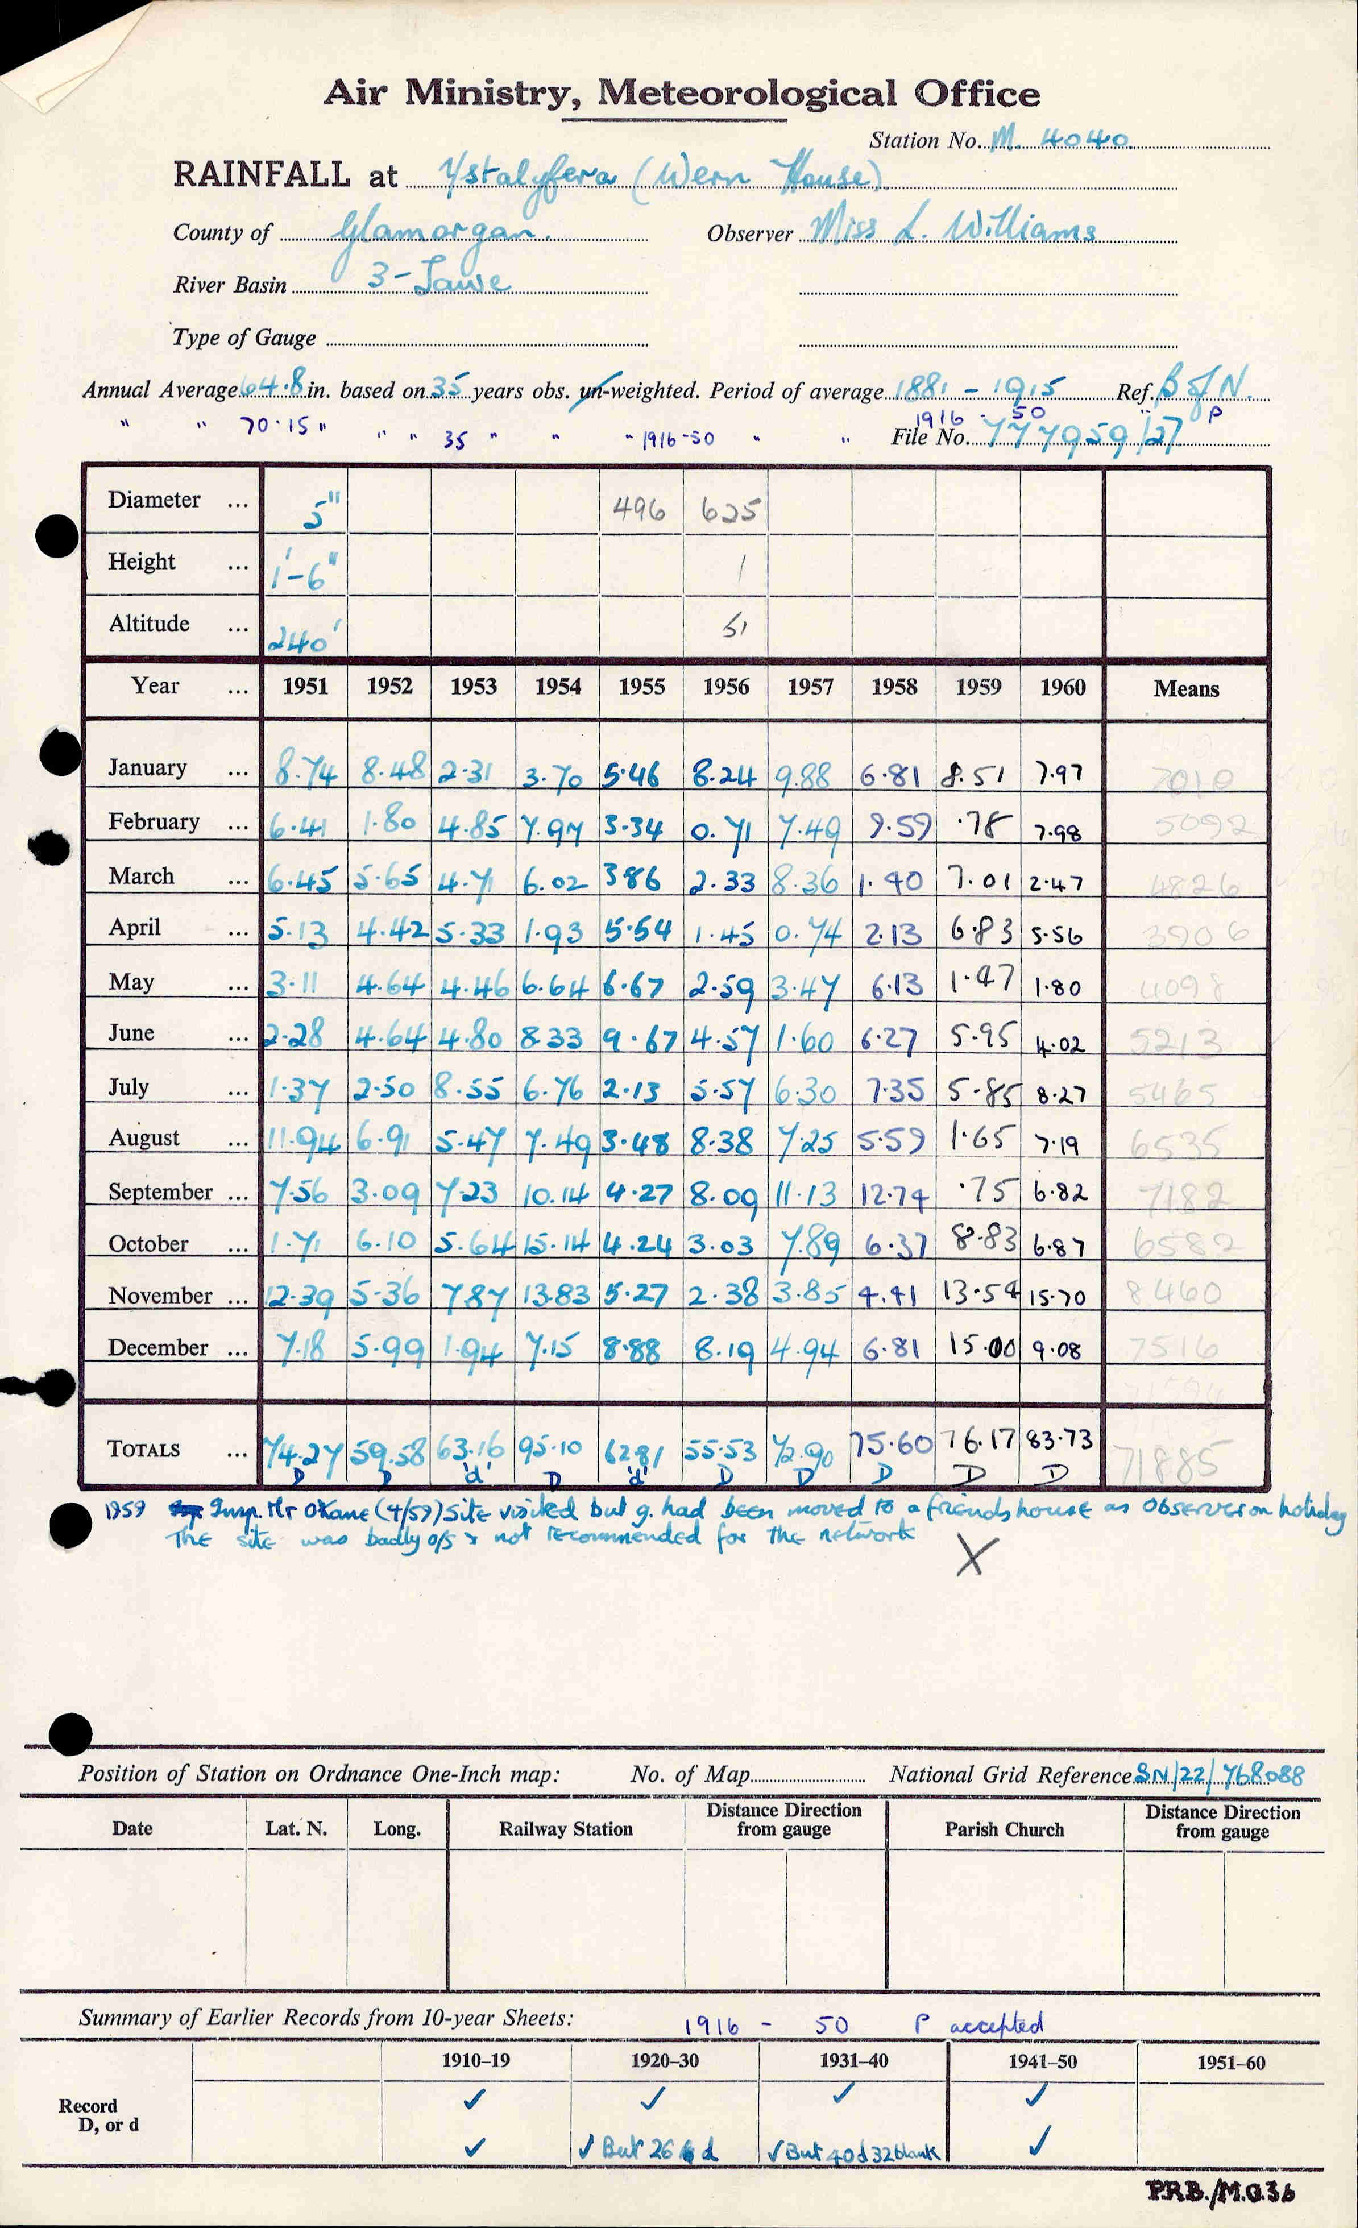 Air Ministry, Meteorological Office
Station No. M. 4040
RAINFALL at Ystalyfera (Wern House)
County of Glamorgan. Observer Miss L. Williams
River Basin 3-Tawe
Type of Gauge
Annual Average 64.8 in. based on 35 years obs. un-weighted. Period of average 1881 - 1915 Ref. B of N.
" " 70.15 " " " 35 " " " 1916-50 " " 1916 - 50 P
File No. 777959/27
Diameter ... 5" 496 625
Height ... 1'-6" 1
Altitude ... 240' 51
Year ... 1951 1952 1953 1954 1955 1956 1957 1958 1959 1960 Means
January ... 8.74 8.48 2.31 3.70 5.46 8.24 9.88 6.81 8.51 7.97 7010
February ... 6.41 1.80 4.85 7.97 3.34 0.71 7.49 9.59 .78 7.98 5092
March ... 6.45 5.65 4.71 6.02 3 86 2.33 8.36 1.40 7.01 2.47 4826
April ... 5.13 4.42 5.33 1.93 5.54 1.45 0.74 2.13 6.83 5.56 3906
May ... 3.11 4.64 4.46 6.64 6.67 2.59 3.47 6.13 1.47 1.80 4098
June ... 2.28 4.64 4.80 8.33 9.67 4.57 1.60 6.27 5.95 4.02 5213
July ... 1.37 2.50 8.55 6.76 2.13 5.57 6.30 7.35 5.85 8.27 5465
August ... 11.94 6.91 5.47 7.49 3.48 8.38 7.25 5.59 1.65 7.19 6535
September ... 7.56 3.09 7.23 10.14 4.27 8.09 11.13 12.74 .75 6.82 7182
October ... 1.71 6.10 5.64 15.14 4.24 3.03 7.89 6.37 8.83 6.87 6582
November ... 12.39 5.36 7.87 13.83 5.27 2.38 3.85 4.41 13.54 15.70 8460
December ... 7.18 5.99 1.94 7.15 8.88 8.19 4.94 6.81 15.00 9.08 7516
TOTALS ... 74.27 59.58 63.16 95.10 62.81 55.53 72.90 75.60 76.17 83.73 71885
D D 'd' D 'd' D D D D D
1959 Insp. Mr OKane (4/59) Site visited but g. had been moved to a friends house as observer on holiday
The site was badly o/s & not recommended for the network X
Position of Station on Ordnance One-Inch map: No. of Map National Grid Reference SN/22/768088
Date Lat. N. Long. Railway Station Distance Direction from gauge Parish Church Distance Direction from gauge
Summary of Earlier Records from 10-year Sheets: 1916 - 50 P accepted
1910–19 1920–30 1931–40 1941–50 1951–60
Record ✓ ✓ ✓ ✓
D, or d ✓ ✓ But 26 d ✓ But 40d 32 blank ✓
P.R.B./M.O.36